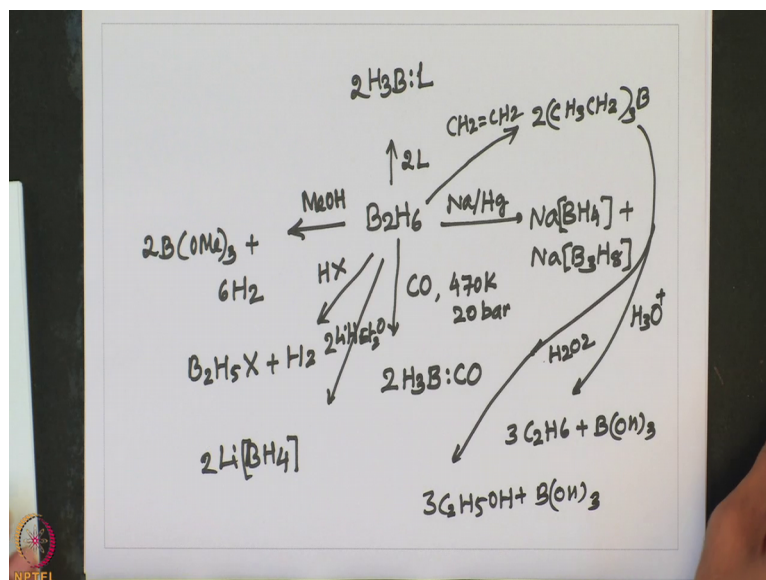 2H3B:L
2L
CH2=CH2
2(CH3CH2)3B
MeOH
B2H6
Na/Hg
Na[BH4] +
Na[B3H8]
2B(OMe)3 +
6H2
HX
CO, 470K
20 bar
H3O+
B2H5X + H2
2LiH Et2O
H2O2
2H3B:CO
3C2H6 + B(OH)3
2Li[BH4]
3C2H5OH + B(OH)3
NPTEL